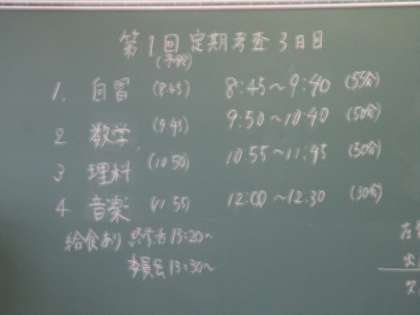 第1回定期考査 3日目
(予鈴)
1. 自習 (8:45) 8:45~9:40 (55分)
2 数学 (9:45) 9:50~10:40 (50分)
3 理科 (10:50) 10:55~11:45 (50分)
4 音楽 (11:55) 12:00~12:30 (30分)
給食あり 終学活 13:20~
委員会 13:30~